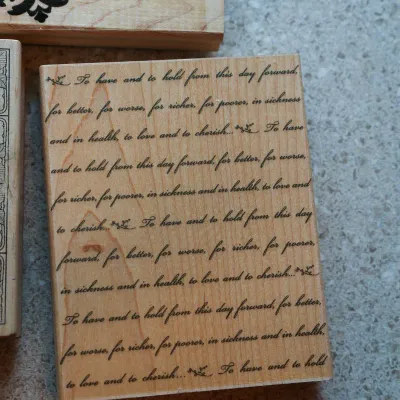 To have and to hold from this day forward,
for better, for worse, for richer, for poorer, in sickness
and in health, to love and to cherish... To have
and to hold from this day forward, for better, for worse,
for richer, for poorer, in sickness and in health, to love and
to cherish... To have and to hold from this day
forward, for better, for worse, for richer, for poorer,
in sickness and in health, to love and to cherish...
To have and to hold from this day forward, for better,
for worse, for richer, for poorer, in sickness and in health,
to love and to cherish... To have and to hold